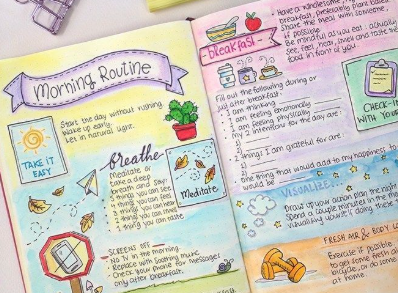 Morning Routine
Start the day without rushing.
Wake up early.
Let in natural light.
TAKE IT
EASY
Breathe
Meditate or
take a deep
breath and say:
5 things you can see
4 things you can feel
3 things you can hear
2 things you can smell
1 thing you can taste
Meditate
SCREENS OFF
No TV in the morning.
Replace with soothing music.
Check your phone for messages
only after breakfast.
Have a wholesome,
breakfast, preferably plant based
Share the meal with someone,
if possible.
Be mindful as you eat: actually
see, feel, hear, smell and taste the
food in front of you.
breakfast
Fill out the following during or
just after breakfast:
I am thinking
I am feeling emotionally
I am feeling physically
My 2 intentions for the day are:
1)
2)
2 things I am grateful for are:
1)
2)
One thing that would add to my happiness to
would be
CHECK-IN
WITH YOUR
VISUALIZE...
Draw up your action plan the night
Spend a couple minutes in the m
visualizing yourself doing these
FRESH AIR & BODY
Exercise if possible
to get some fresh ai
bicycle, or do some
at home.